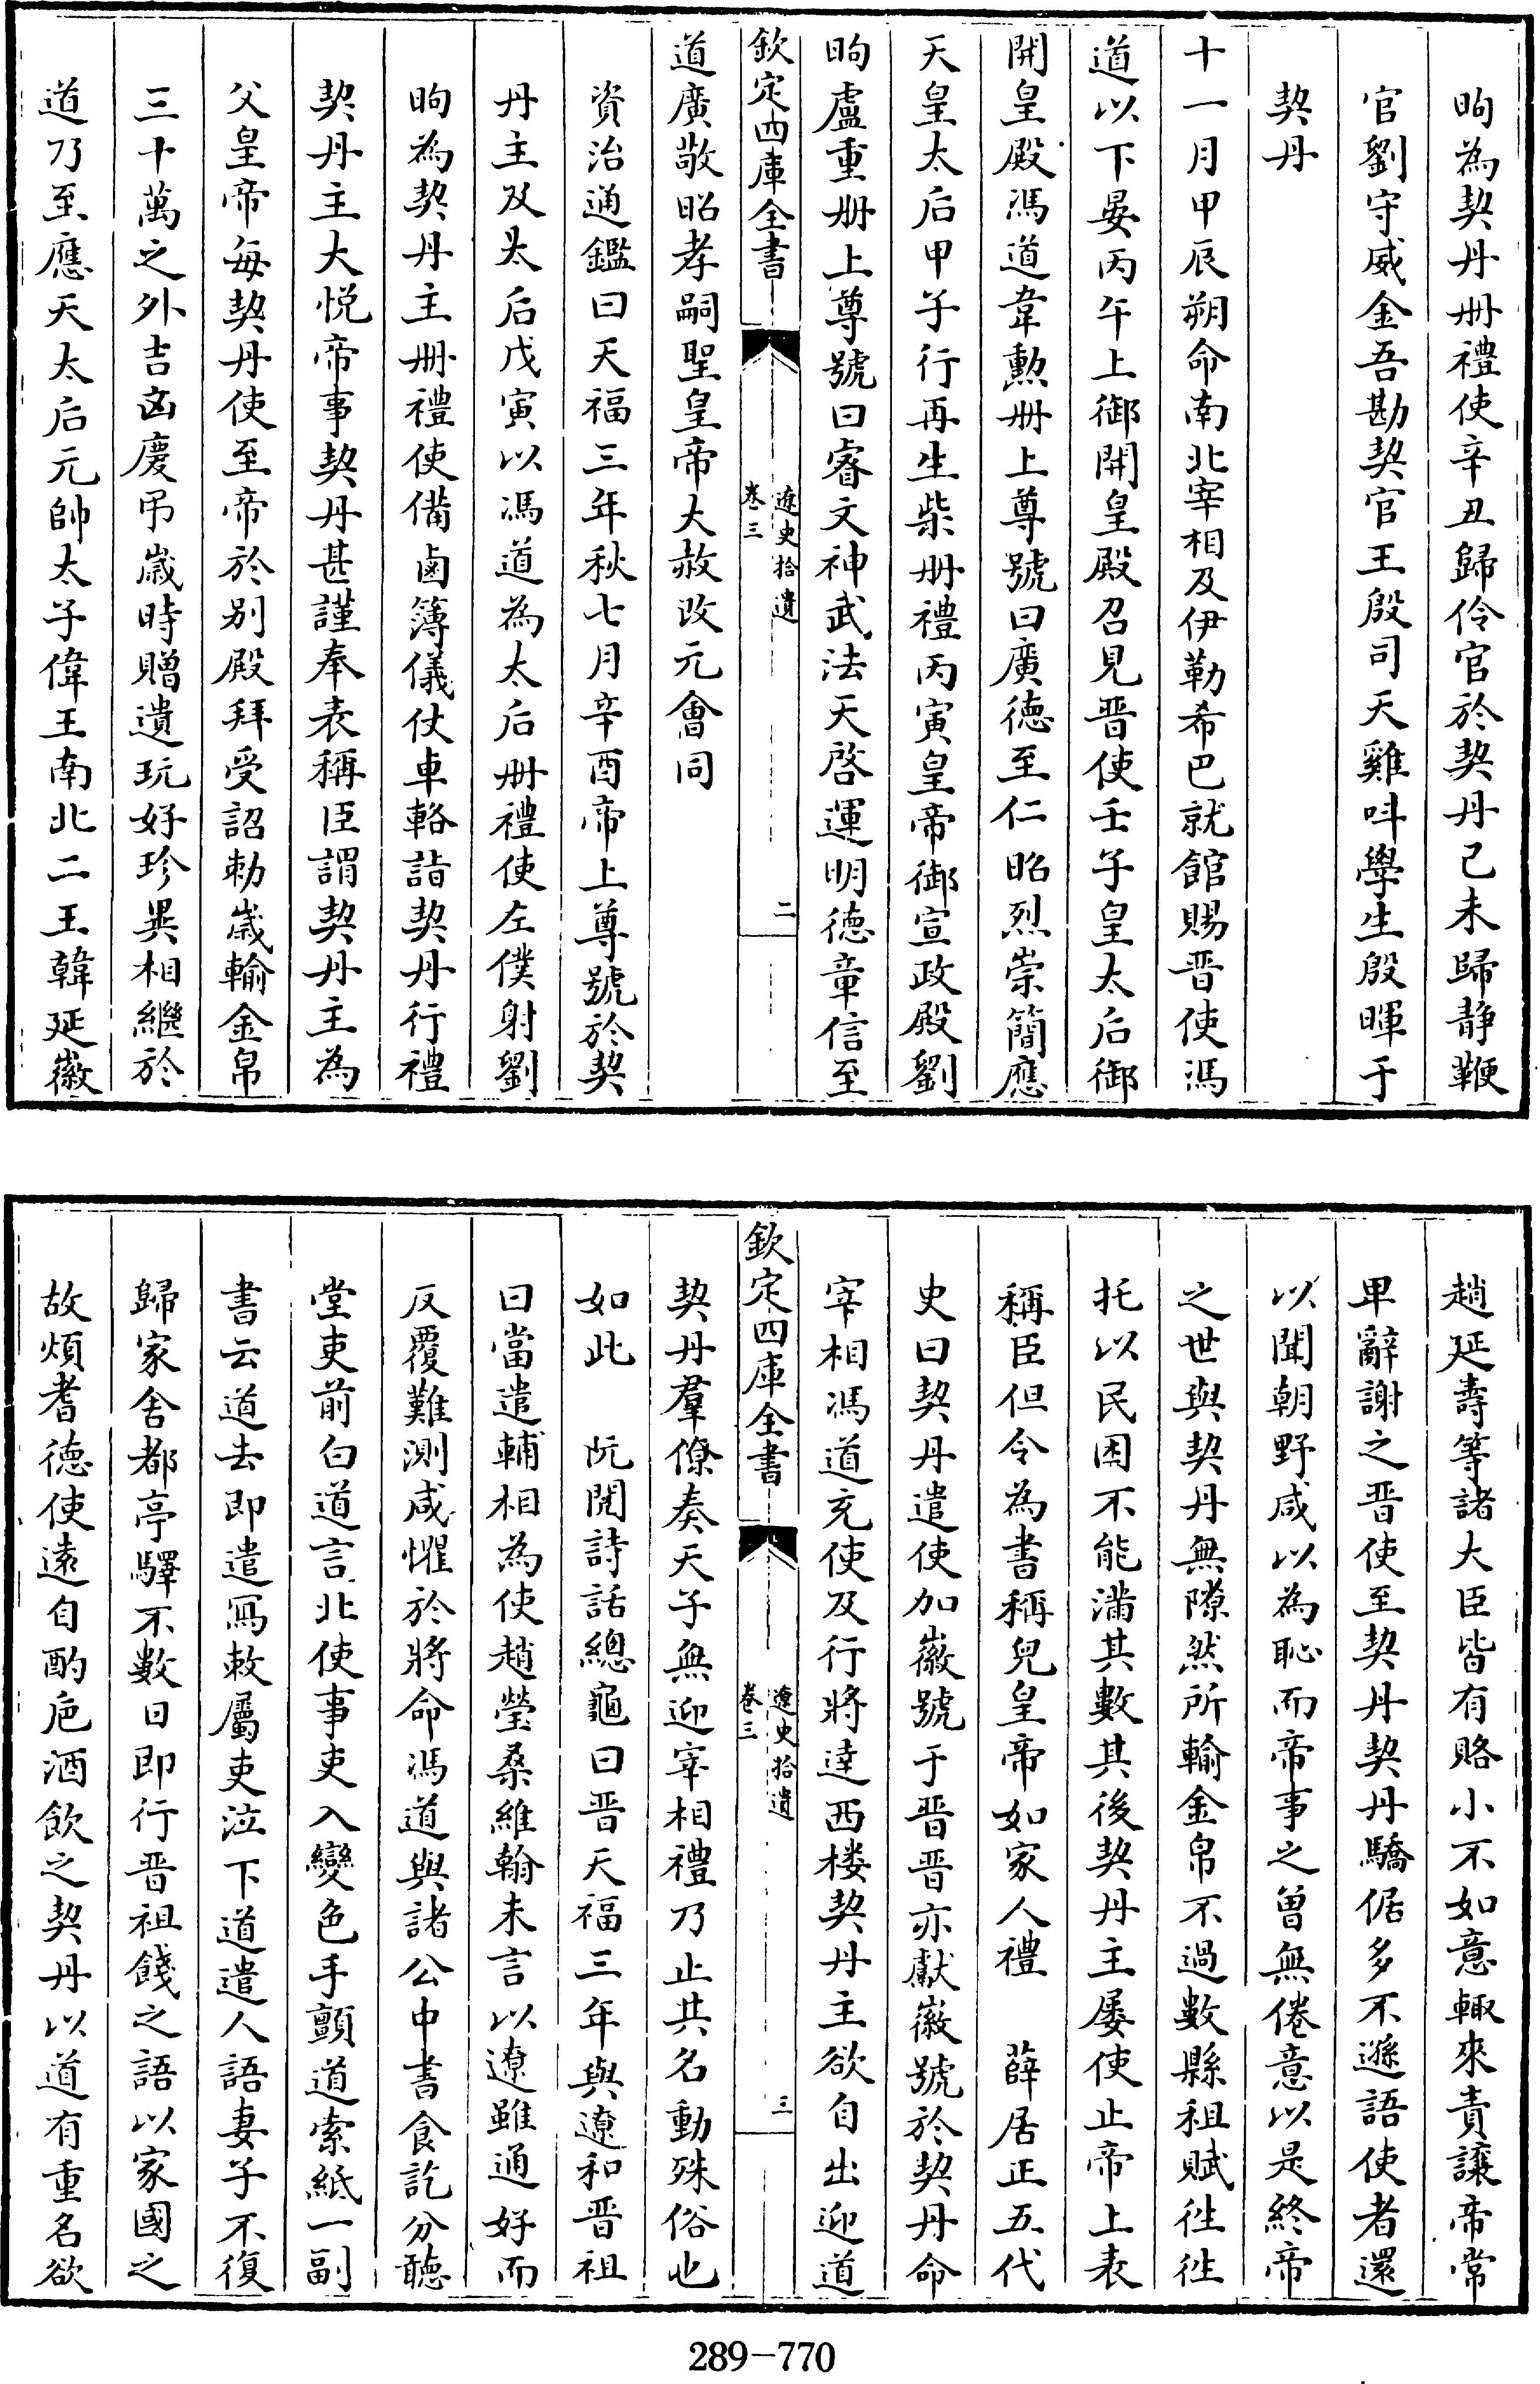 昫為契丹册禮使辛丑歸伶官於契丹己未歸静鞭
官劉守威金吾勘契官王殷司天雞呌學生殷暉于
契丹
十一月甲辰朔命南北宰相及伊勒希巴就館賜晋使馮
道以下宴丙午上御開皇殿召見晋使壬子皇太后御
開皇殿馮道韋勲册上尊號曰廣徳至仁昭烈崇簡應
天皇太后甲子行再生柴册禮丙寅皇帝御宣政殿劉
昫盧重册上尊號曰睿文神武法天啓運明徳章信至
欽定四庫全書
遼史拾遺
卷三
二
道廣敬昭孝嗣聖皇帝大赦改元會同
資治通鑑曰天福三年秋七月辛酉帝上尊號於契
丹主及太后戊寅以馮道為太后册禮使左僕射劉
昫為契丹主册禮使備鹵簿儀仗車輅詣契丹行禮
契丹主大悦帝事契丹甚謹奉表稱臣謂契丹主為
父皇帝每契丹使至帝於别殿拜受詔勅歳輸金帛
三十萬之外吉凶慶弔歳時贈遺玩好珍異相繼於
道乃至應天太后元帥太子偉王南北二王韓延徽
趙延壽等諸大臣皆有賂小不如意輙來責讓帝常
卑辭謝之晋使至契丹契丹驕倨多不遜語使者還
以聞朝野咸以為恥而帝事之曽無倦意以是終帝
之世與契丹無隙然所輸金帛不過數縣租賦徃徃
托以民困不能滿其數其後契丹主屡使止帝上表
稱臣但令為書稱兒皇帝如家人禮　薛居正五代
史曰契丹遣使加徽號于晋晋亦獻徽號於契丹命
宰相馮道充使及行將達西楼契丹主欲自出迎道
欽定四庫全書
遼史拾遺
卷三
三
契丹羣僚奏天子無迎宰相禮乃止其名動殊俗也
如此　阮閱詩話總龜曰晋天福三年與遼和晋祖
曰當遣輔相為使趙瑩桑維翰未言以遼雖通好而
反覆難測咸懼於將命馮道與諸公中書食訖分聽
堂吏前白道言北使事吏入變色手顫道索紙一副
書云道去即遣寫敕屬吏泣下道遣人語妻子不復
歸家舍都亭驛不數日即行晋祖餞之語以家國之
故煩耆德使遠自酌巵酒飲之契丹以道有重名欲
289-770